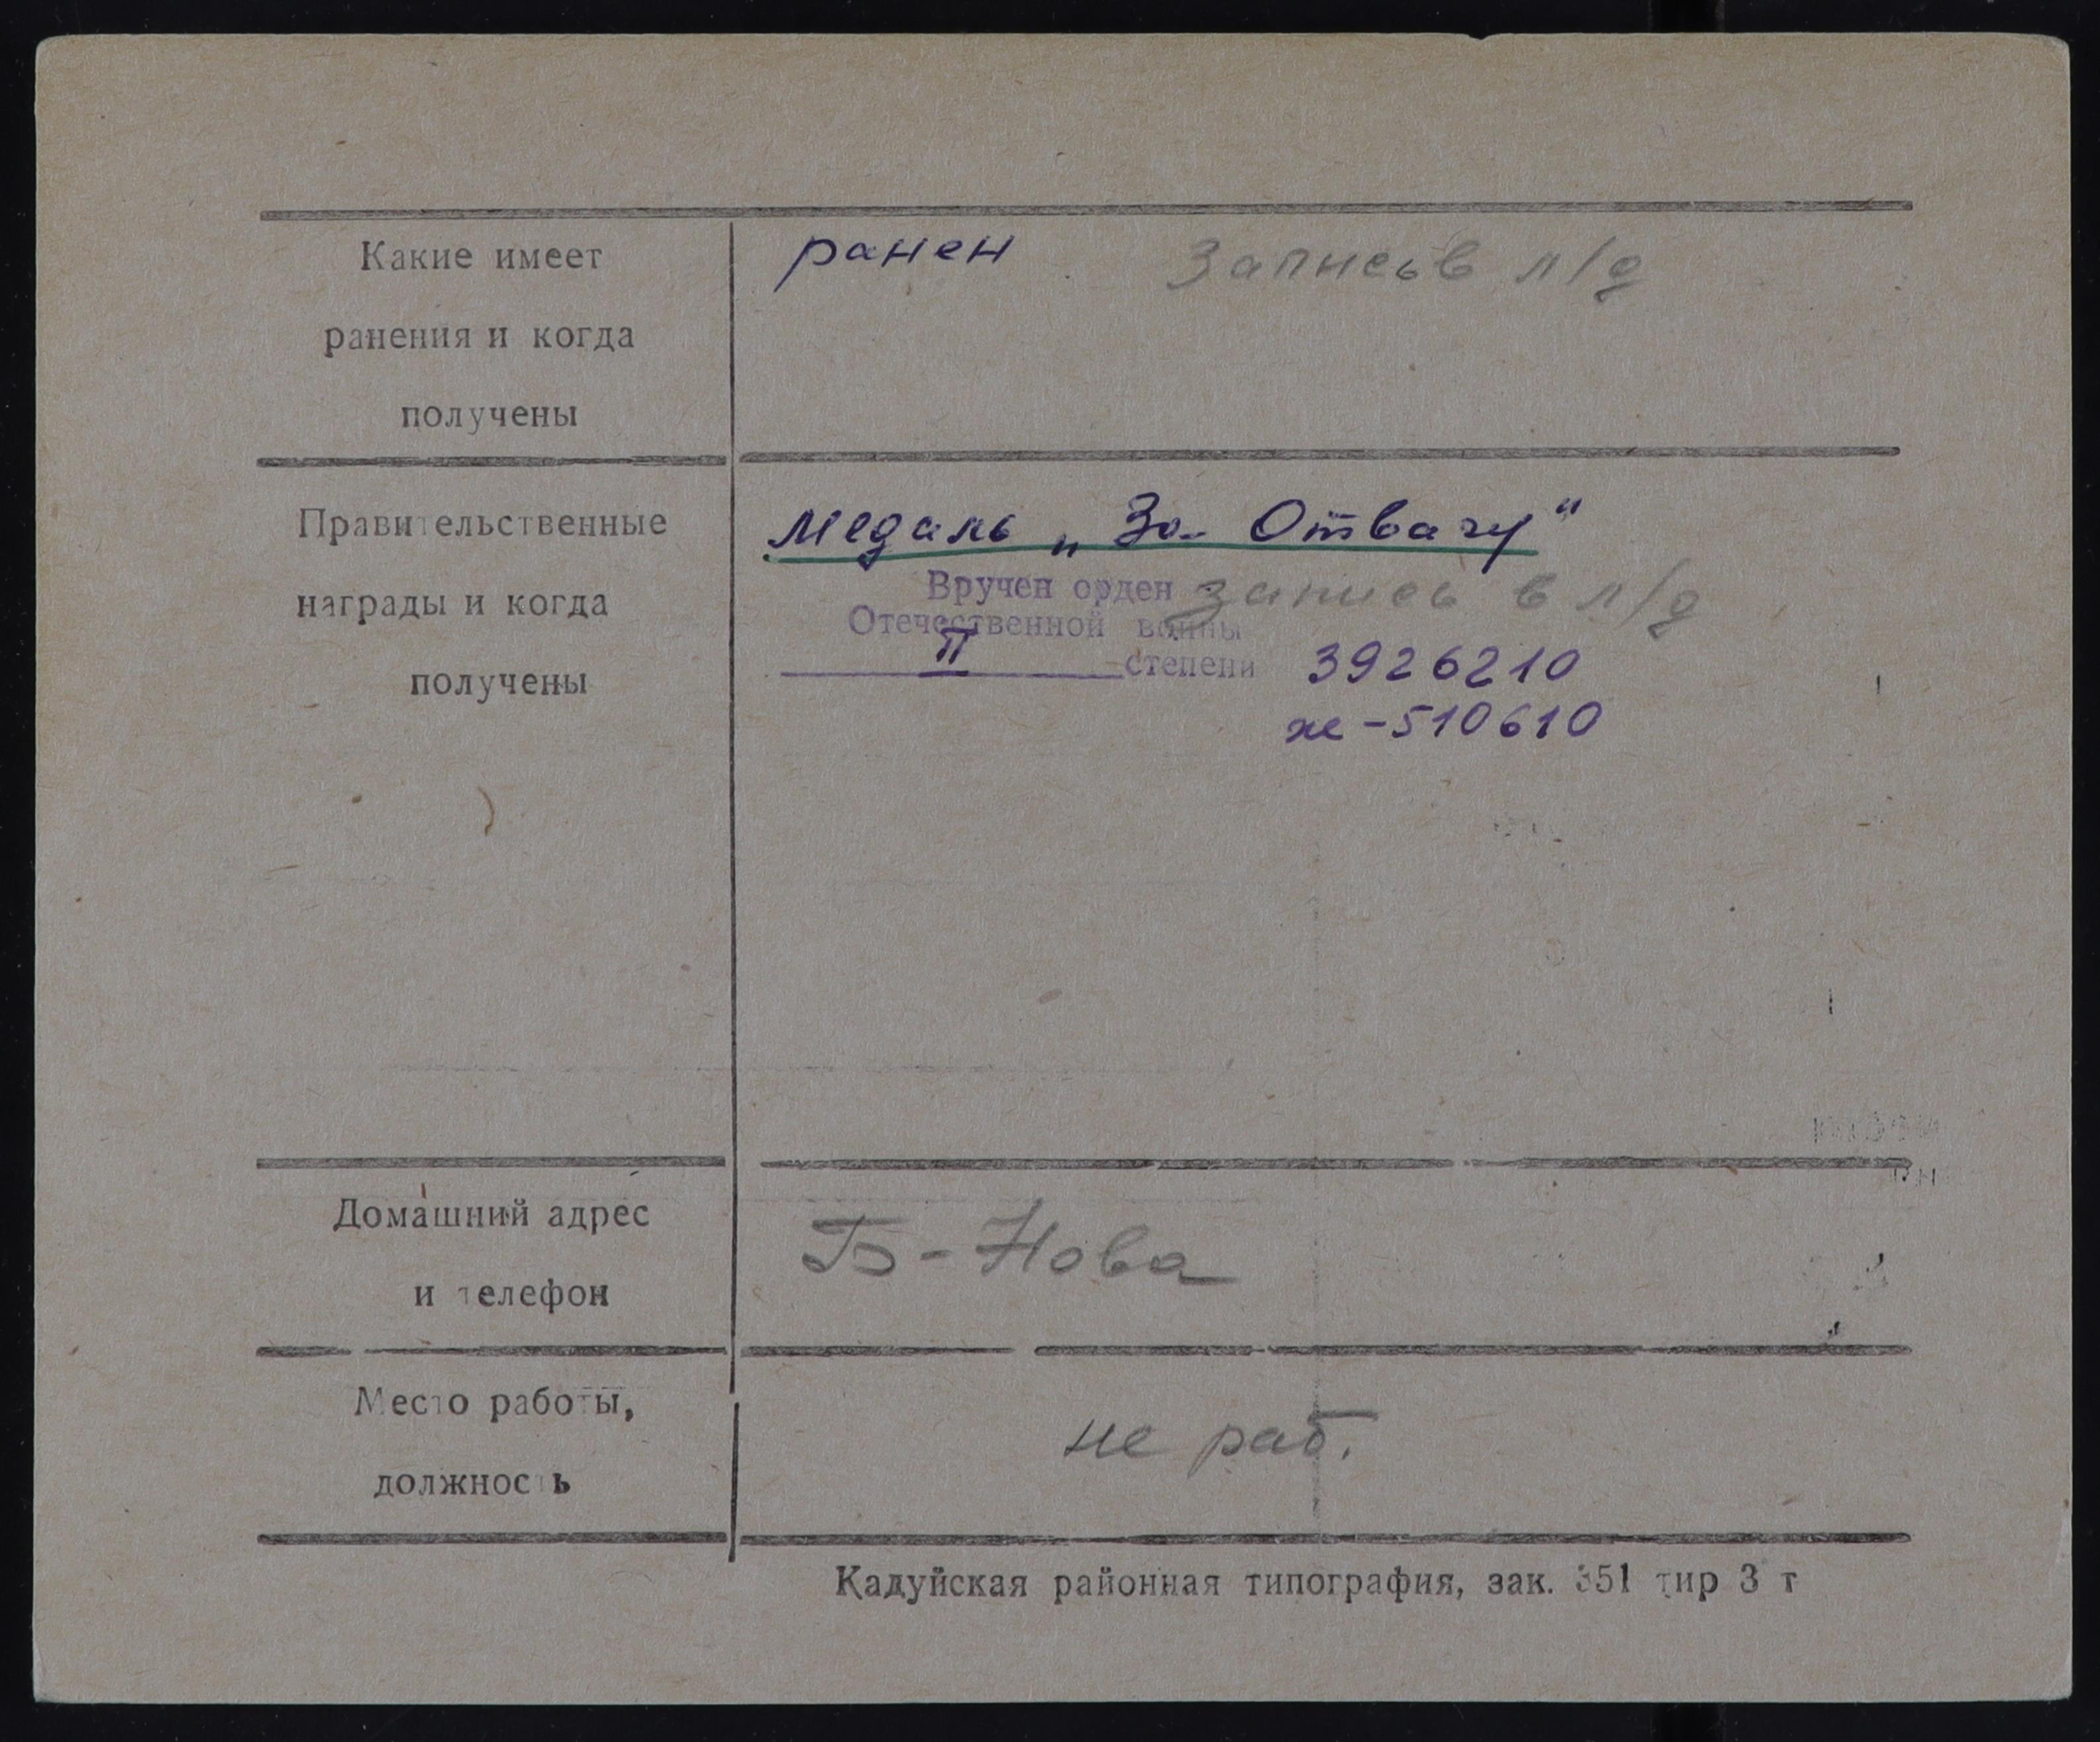 Какие имеет
ранения и когда
получены
ранен Запись в л/д
Правительственные
награды и когда
получены
Медаль „За Отвагу“
Вручен орден запись в л/д
Отечественной войны
II степени 3926210
же-510610
Домашний адрес
и телефон
Б-Нова
Место работы,
должность
не раб.
Кадуйская районная типография, зак. 351 тир 3 т